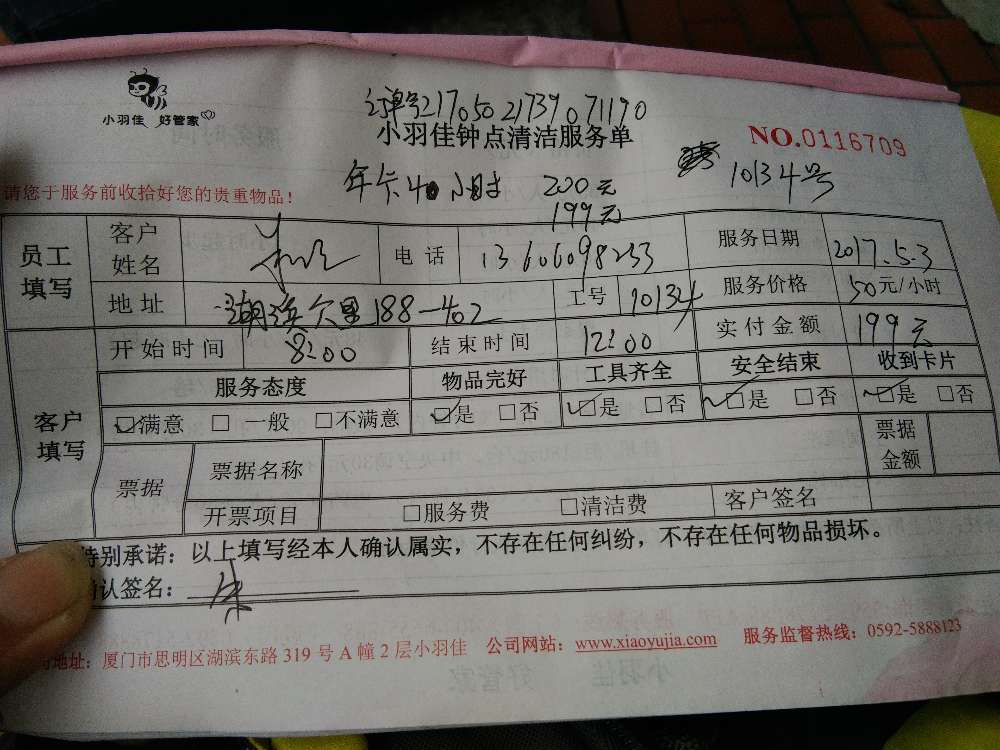 小羽佳 好管家
订单号21705021739071190
小羽佳钟点清洁服务单
NO.0116709
年卡40小时 200元 10134号
199元
请您于服务前收拾好您的贵重物品!
员工填写 客户姓名 电话 13606098233 服务日期 2017.5.3
地址 湖滨六里188-402 工号 10134 服务价格 50元/小时
客户填写 开始时间 8:00 结束时间 12:00 实付金额 199元
服务态度 物品完好 工具齐全 安全结束 收到卡片
☑满意 □一般 □不满意 ☑是 □否 ☑是 □否 ☑是 □否 ☑是 □否
票据 票据名称 票据金额
开票项目 □服务费 □清洁费 客户签名
特别承诺：以上填写经本人确认属实，不存在任何纠纷，不存在任何物品损坏。
确认签名：朱
地址：厦门市思明区湖滨东路319号A幢2层小羽佳 公司网站：www.xiaoyujia.com 服务监督热线：0592-5888123